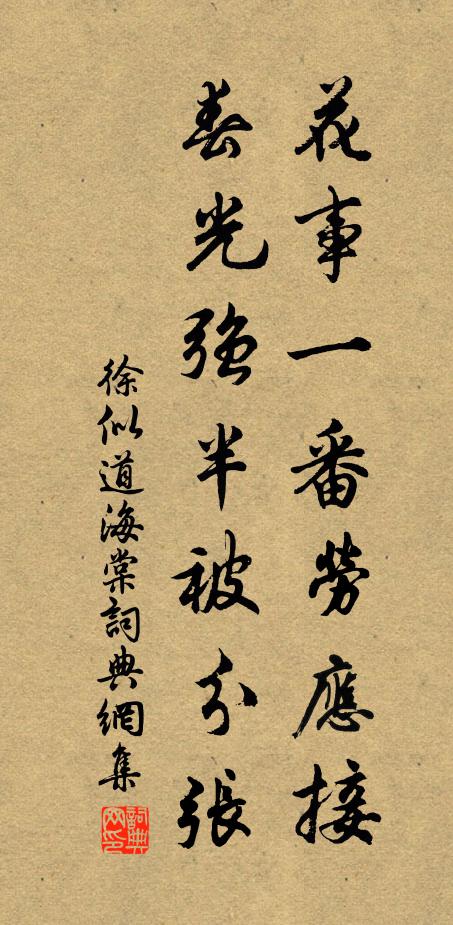 花事一番勞應接
春光強半被分張
徐似道海棠詞典網集
詞典網印